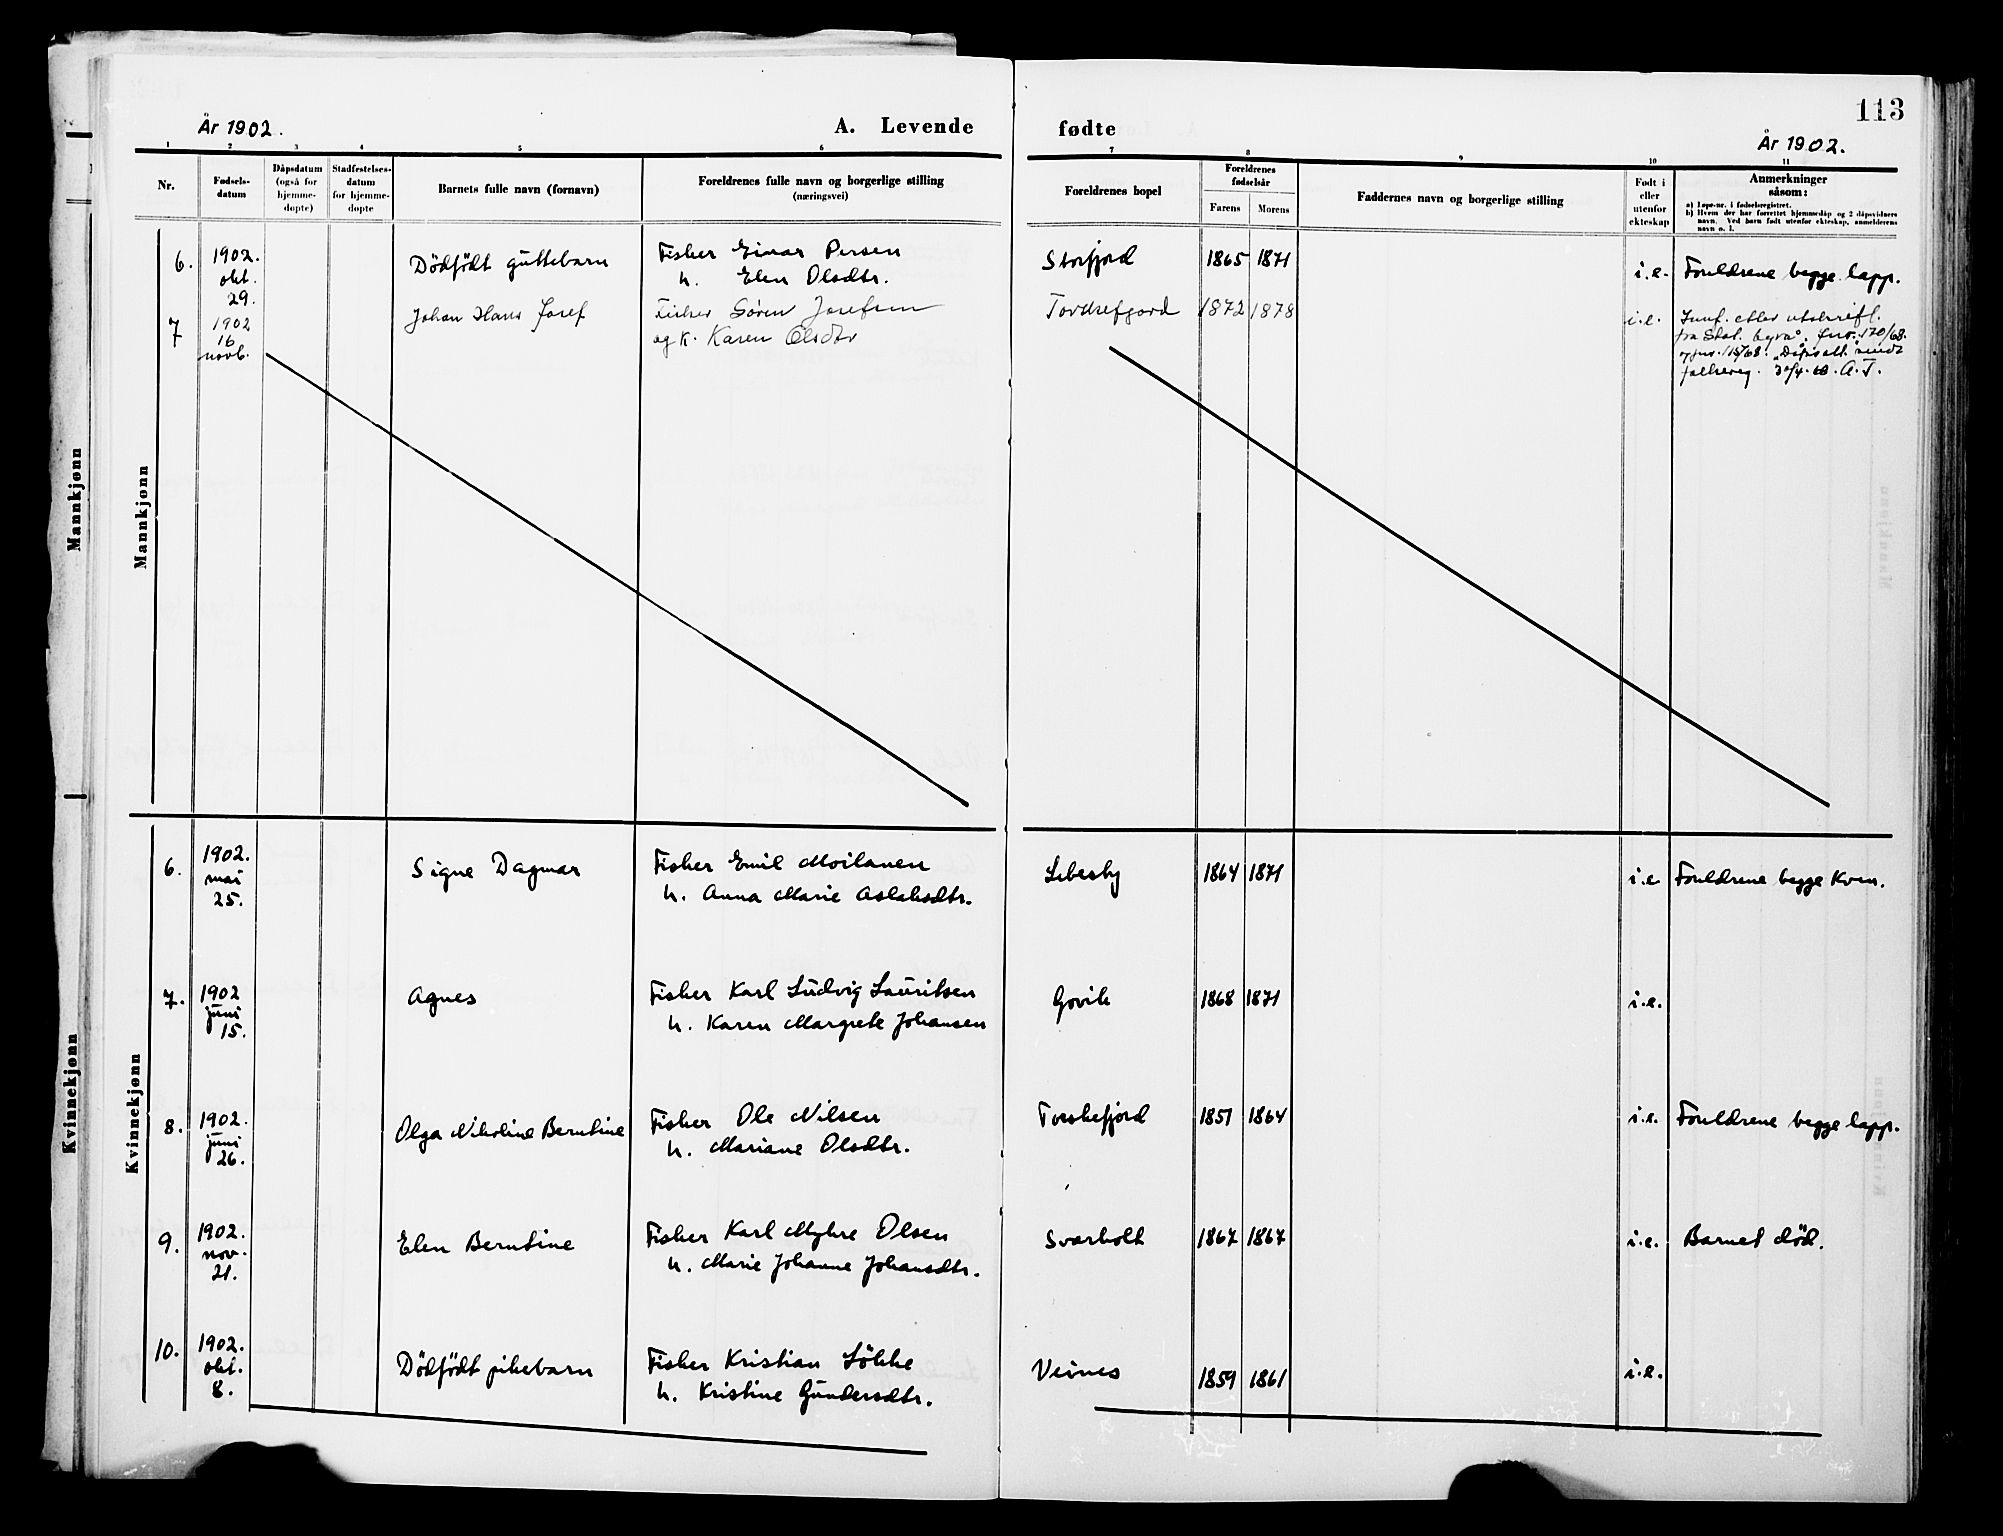 113
År 1902.
A. Levende fødte
År 1902.
1 2 3 4 5 6 7 8 9 10 11
Nr.
Fødsels-
datum
Dåpsdatum
(også for
hjemme-
døpte)
Stadfestelses-
datum
for hjemme-
døpte
Barnets fulle navn (fornavn)
Foreldrenes fulle navn og borgerlige stilling
(næringsvei)
Foreldrenes bopel
Foreldrenes
fødselsår
Farens Morens
Faddernes navn og borgerlige stilling
Født i
eller
utenfor
ekteskap
Anmerkninger
såsom:
a) Løpe-nr. i fødselsregistret.
b) Hvem der har forrettet hjemmedåp og 2 dåpsvidners
navn. Ved barn født utenfor ekteskap, anmelderens
navn o. l.
Mannkjønn
Mannkjønn
6. 1902. okt. 29. Dödfödt guttebarn Fisker Einar Persen
h. Elen Olsdtr. Storfjord 1865 1871 i.e. Foreldrene begge lapp.
7 1902 16 novb. Johan Hans Josef Fisker Søren Josefsen
og k. Karen Olsdtr Torskefjord 1872 1878 i.e.
fra Stat. byrå. jnr. 170/68.
folkereg. 30/4-68. A.T.
Kvinnekjønn
Kvinnekjønn
6. 1902. mai 25. Signe Dagmar Fisker Emil Moilanen
h. Anna Marie Aslaksdtr. Lebesby 1864 1871 i.e Foreldrene begge Kven.
7. 1902 juni 15. Agnes Fisker Karl Ludvig Lauritsen
h. Karen Margrete Johansen Govik 1868 1871 i.e.
8. 1902. juni 26. Olga Nikoline Berntine Fisker Ole Nilsen
h. Mariane Olsdtr. Torskefjord 1851 1864 i.e. Foreldrene begge lapp.
9. 1902. nov. 21. Elen Berntine Fisker Karl Myhre Olsen
h. Marie Johanne Johansdtr. Svarholt 1867 1867 i.e. Barnet död.
10. 1902. okt. 8. Dödfödt pikebarn Fisker Kristian Lökke
h. Kristine Gundersdtr. Veines 1859 1861 i.e.